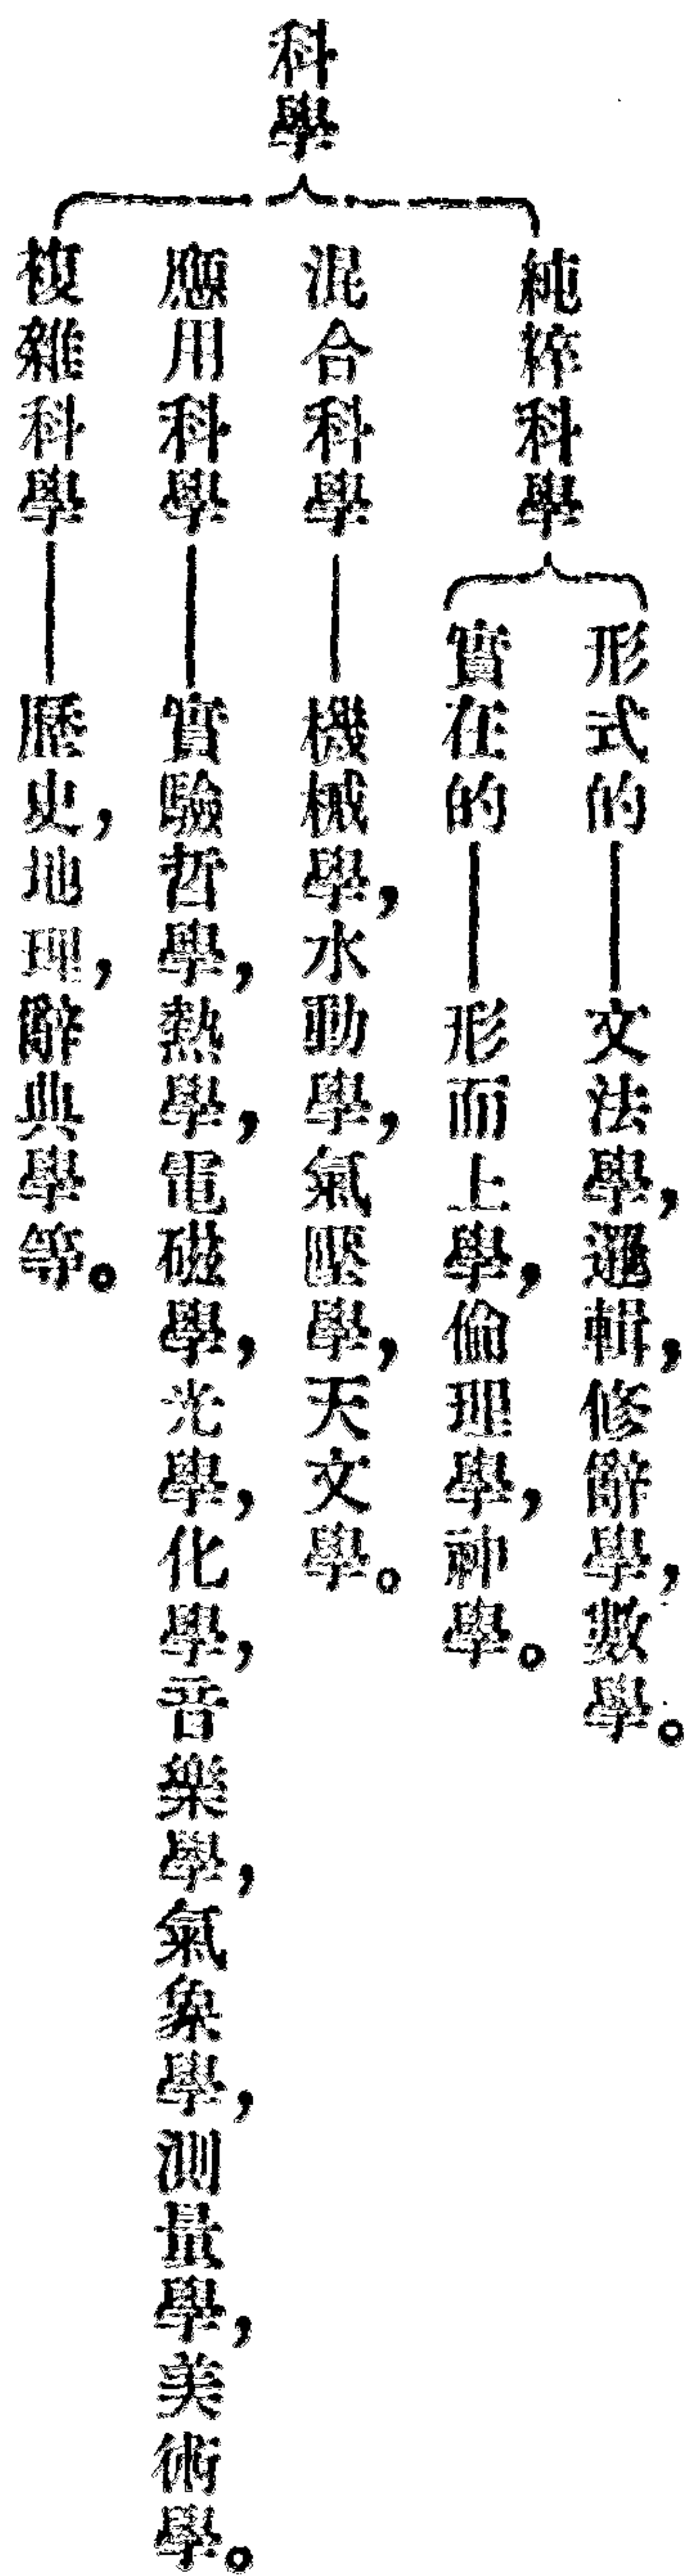 科學
純粹科學
形式的——文法學，邏輯，修辭學，數學。
實在的——形而上學，倫理學，神學。
混合科學——機械學，水動學，氣壓學，天文學。
應用科學——實驗哲學，熱學，電磁學，光學，化學，音樂學，氣象學，測量學，美術學。
複雜科學——歷史，地理，辭典學等。